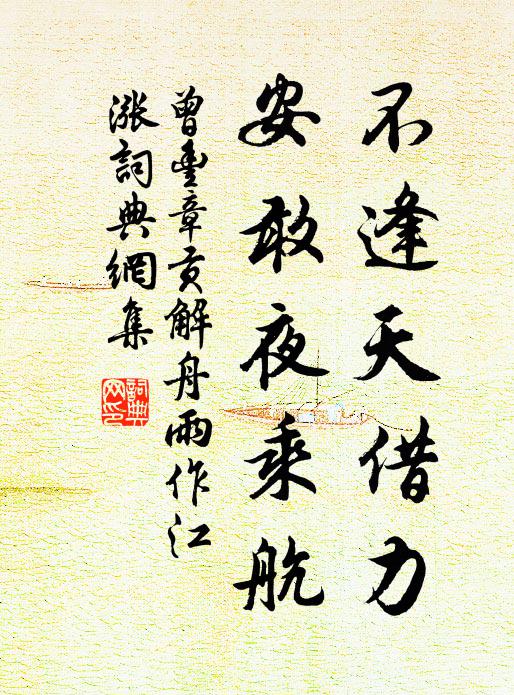 不逢天借力
安敢夜乘航
曾豊章贡解舟雨作江
涨詞典網集
詞典网印